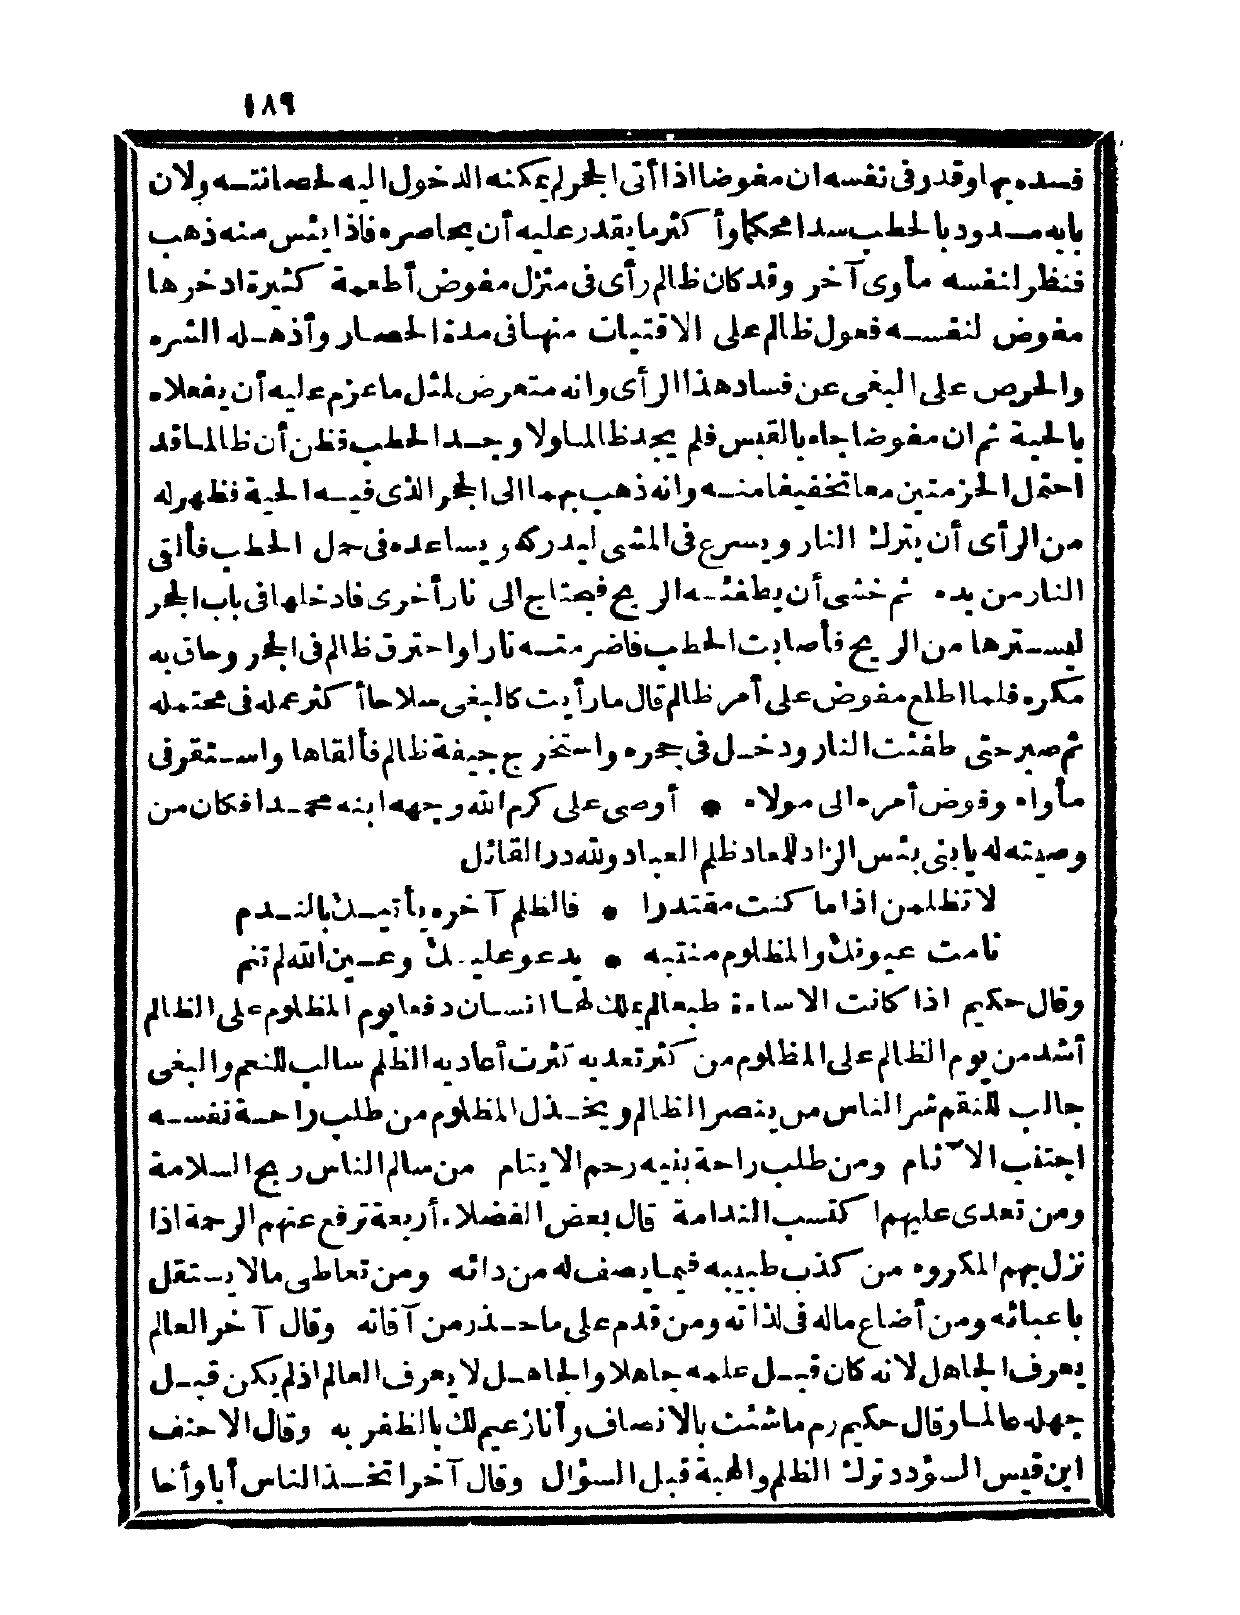 ١٨٩
فسده بهما وقدر فى نفسه ان مفوضا اذا أتى الجحر لم يمكنه الدخول اليه لحصانته ولان
بابه مسدود بالحطب سدا محكما وأكثر ما يقدر عليه أن يحاصره فاذا يئس منه ذهب
فنظر لنفسه مأوى آخر وقد كان ظالم رأى فى منزل مفوض أطعمة كثيرة ادخرها
مفوض لنفسه فعول ظالم على الاقتيات منها فى مدة الحصار وأذهله الشره
والحرص على البغى عن فساد هذا الرأى وانه متعرض لمثل ما عزم عليه أن يفعلاه
بالحية ثم ان مفوضا جاء بالقبس فلم يجد ظالما ولا وجد الحطب فظن أن ظالما قد
احتمل الحزمتين معا تخفيفا منه وانه ذهب بهما الى الجحر الذى فيه الحية فظهر له
من الرأى أن يترك النار ويسرع فى المشى ليدركه ويساعده فى حمل الحطب فألقى
النار من يده ثم خشى أن يطفئه الريح فيحتاج الى نار أخرى فادخلها فى باب الجحر
ليسترها من الريح فأصابت الحطب فاضرمته نارا واحترق ظالم فى الجحر وحاق به
مكره فلما اطلع مفوض على أمر ظالم قال ما رأيت كالبغى سلاحا أكثر عمله فى محتمله
ثم صبر حتى طفئت النار ودخل فى جحره واستخرج جيفة ظالم فألقاها واستقر فى
مأواه وفوض أمره الى مولاه ● أوصى على كرم الله وجهه ابنه محمدا فكان من
وصيته له يا بنى بئس الزاد للمعاد ظلم العباد ولله در القائل
لا تظلمن اذا ما كنت مقتدرا ● فالظلم آخره يأتيك بالندم
نامت عيونك والمظلوم منتبه ● يدعو عليك وعين الله لم تنم
وقال حكيم اذا كانت الاساءة طبعا لم يملك لها انسان دفعا يوم المظلوم على الظالم
أشد من يوم الظالم على المظلوم من كثر تعديه كثرت أعاديه الظلم سالب للنعم والبغى
جالب للنقم شر الناس من ينصر الظالم ويخذل المظلوم من طلب راحة نفسه
اجتنب الآثام ومن طلب راحة بنيه رحم الايتام من سالم الناس ربح السلامة
ومن تعدى عليهم اكتسب الندامة قال بعض الفضلاء أربعة ترفع عنهم الرحمة اذا
نزل بهم المكروه من كذب طبيبه فيما يصف له من دائه ومن تعاطى مالا يستقل
باعبائه ومن أضاع ماله فى لذاته ومن قدم على ما حذر من آفاته وقال آخر العالم
يعرف الجاهل لانه كان قبل علمه جاهلا والجاهل لا يعرف العالم اذ لم يكن قبل
جهله عالما وقال حكيم رم ما شئت بالانصاف وأنا زعيم لك بالظفر به وقال الاحنف
ابن قيس السؤدد ترك الظلم والهبة قبل السؤال وقال آخر اتخذ الناس أبا وأخا